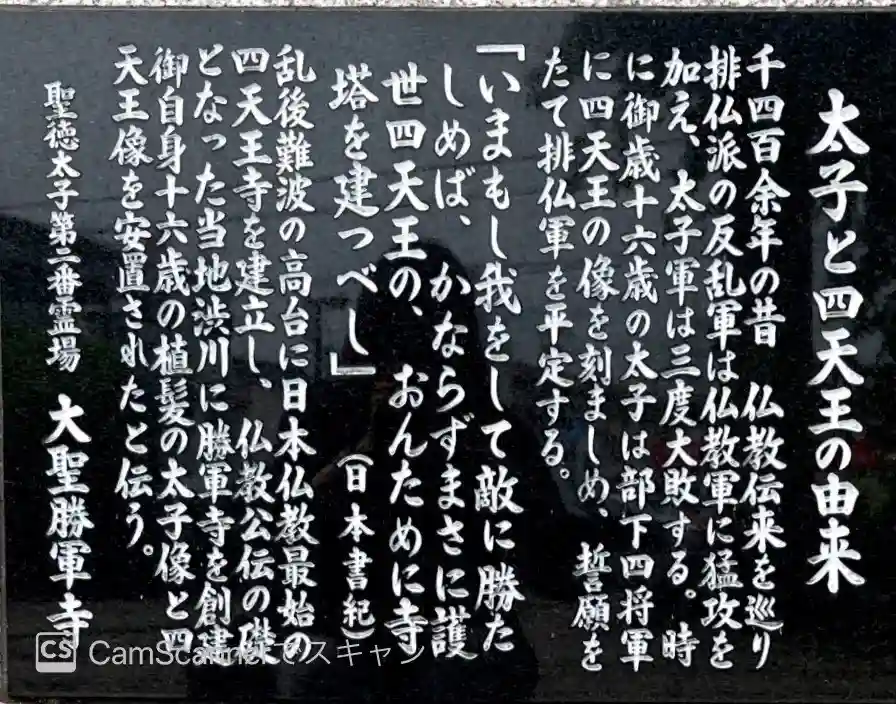 太子と四天王の由来
千四百余年の昔 仏教伝来を巡り
排仏派の反乱軍は仏教軍に猛攻を
加え、太子軍は三度大敗する。時
に御歳十六歳の太子は部下四将軍
に四天王の像を刻ましめ、誓願を
たて排仏軍を平定する。
「いまもし我をして敵に勝た
しめば、かならずまさに護
世四天王の、おんために寺
塔を建つべし」(日本書紀)
乱後難波の高台に日本仏教最始の
四天王寺を建立し、仏教公伝の礎
となった当地渋川に勝軍寺を創建
御自身十六歳の植髪の太子像と四
天王像を安置されたと伝う。
聖徳太子第二番霊場 大聖勝軍寺
CS CamScannerでスキャン